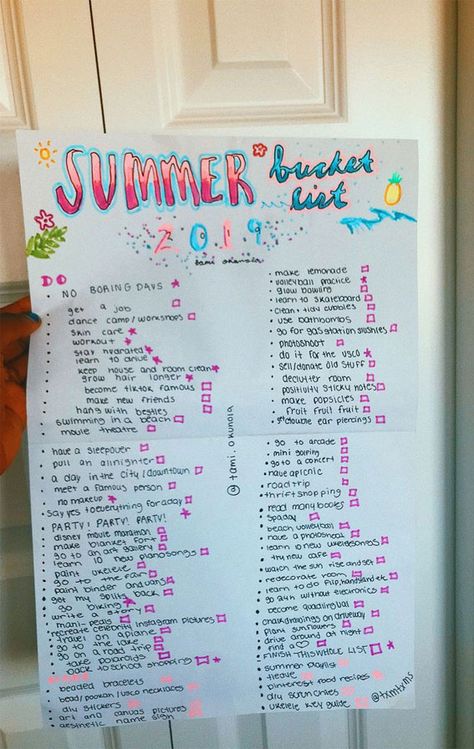 SUMMER bucket list
2019
tami okunola
DO
• NO BORING DAYS
get a job
dance camp/workshops
skin care
workout
stay hydrated
learn to drive
keep house and room clean
grow hair longer
become tiktok famous
make new friends
hang with besties
swimming in a beach
movie theatre
• make lemonade
• volleyball practice
• glow bowling
• learn to skateboard
• clean + tidy cubbies
• use bathbombs
• go for gas station slushies
photoshoot
• do it for the vsco
• sell/donate old stuff
declutter room
• positivity sticky notes
make popsicles
fruit fruit fruit
ear piercings
@tami.okunola
• have a sleepover
pull an allnighter
a day in the city/downtown
meet a famous person
no makeup
say yes to everything for a day
PARTY! PARTY! PARTY!
disney movie marathon
make blanket fort
go to an art gallery
learn 10 new piano songs
paint ukelele
go to the fair
paint binder and vans
get my splits back
go biking
write a story
mani-pedis
recreate celebrity instagram pictures
travel on a plane
go to the lake
go on a road trip
take polaroids
back to school shopping
• go to arcade
• mini golfing
• go to a concert
have a picnic
• road trip
• thrift shopping
• read many books
spa day
• beach volleyball
• have a photoshoot
• learn 10 new ukelele songs
try new cafe
• watch the sun rise and set
redecorate room
• learn to do flip, handstand etc.
• go 24h without electronics
become
chalk drawings on driveway
plant sunflowers
drive around at night
find a
FINISH THIS WHOLE LIST
beaded bracelets
bead/pookah/vsco necklaces
diy stickers
art and canvas pictures
aesthetic name sign
• summer playlist
tiedye
• pinterest food recipes
diy scrunchies
• ukelele key guide
@txmtxms